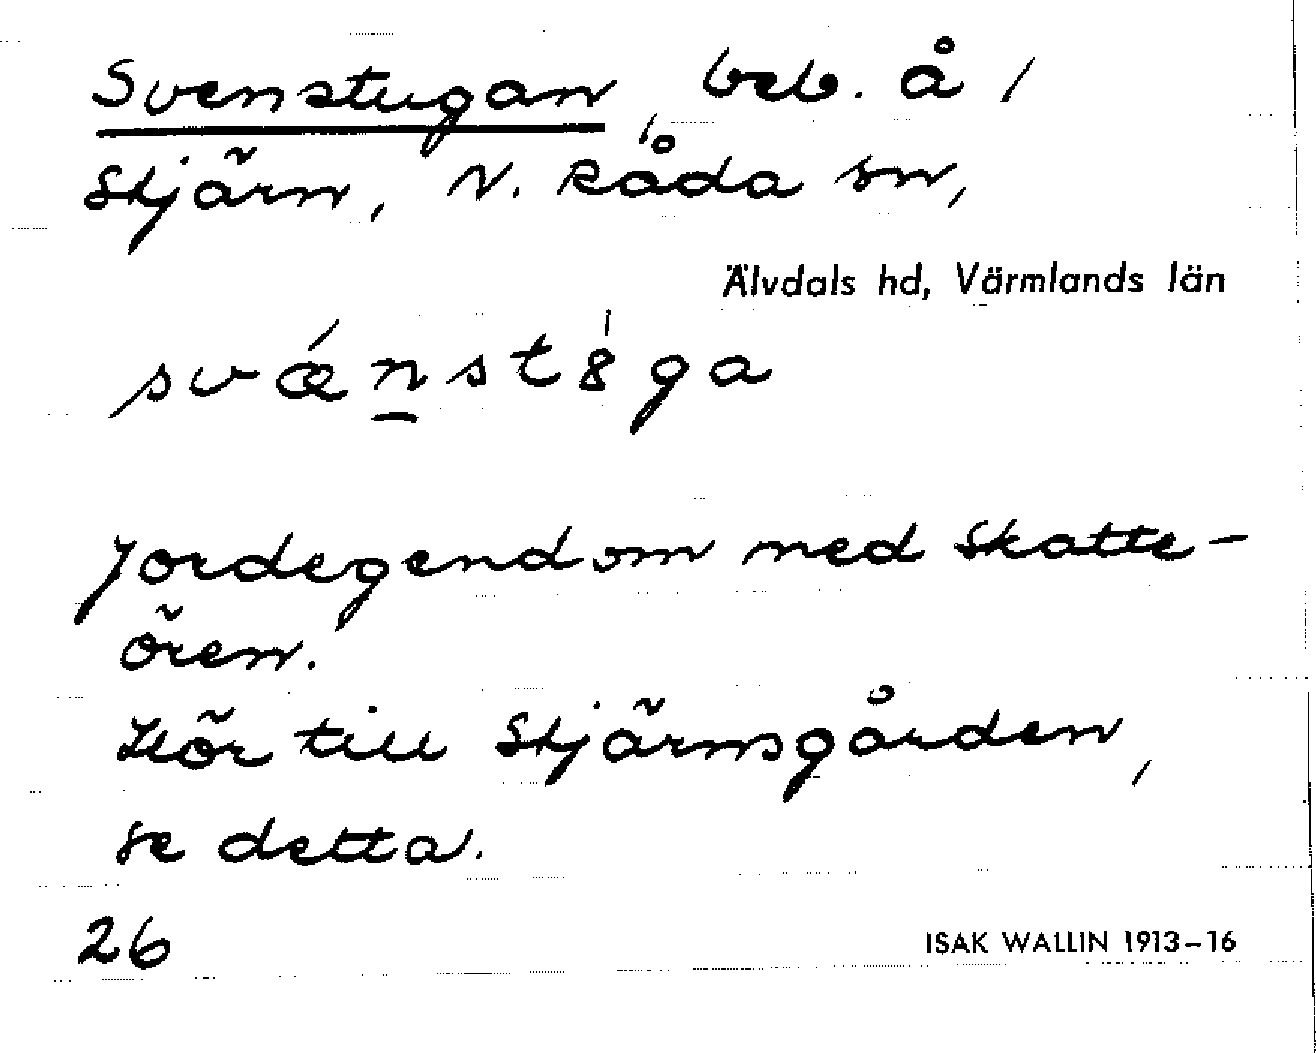 Svenstugan, beb. å /
Stjärn, N. Råda sn,
Älvdals hd, Värmlands län
svǽn̲st8́ga
Jordegendom med skatte-
ören.
Hör till Stjärnsgården,
se detta.
26
ISAK WALLIN 1913–16